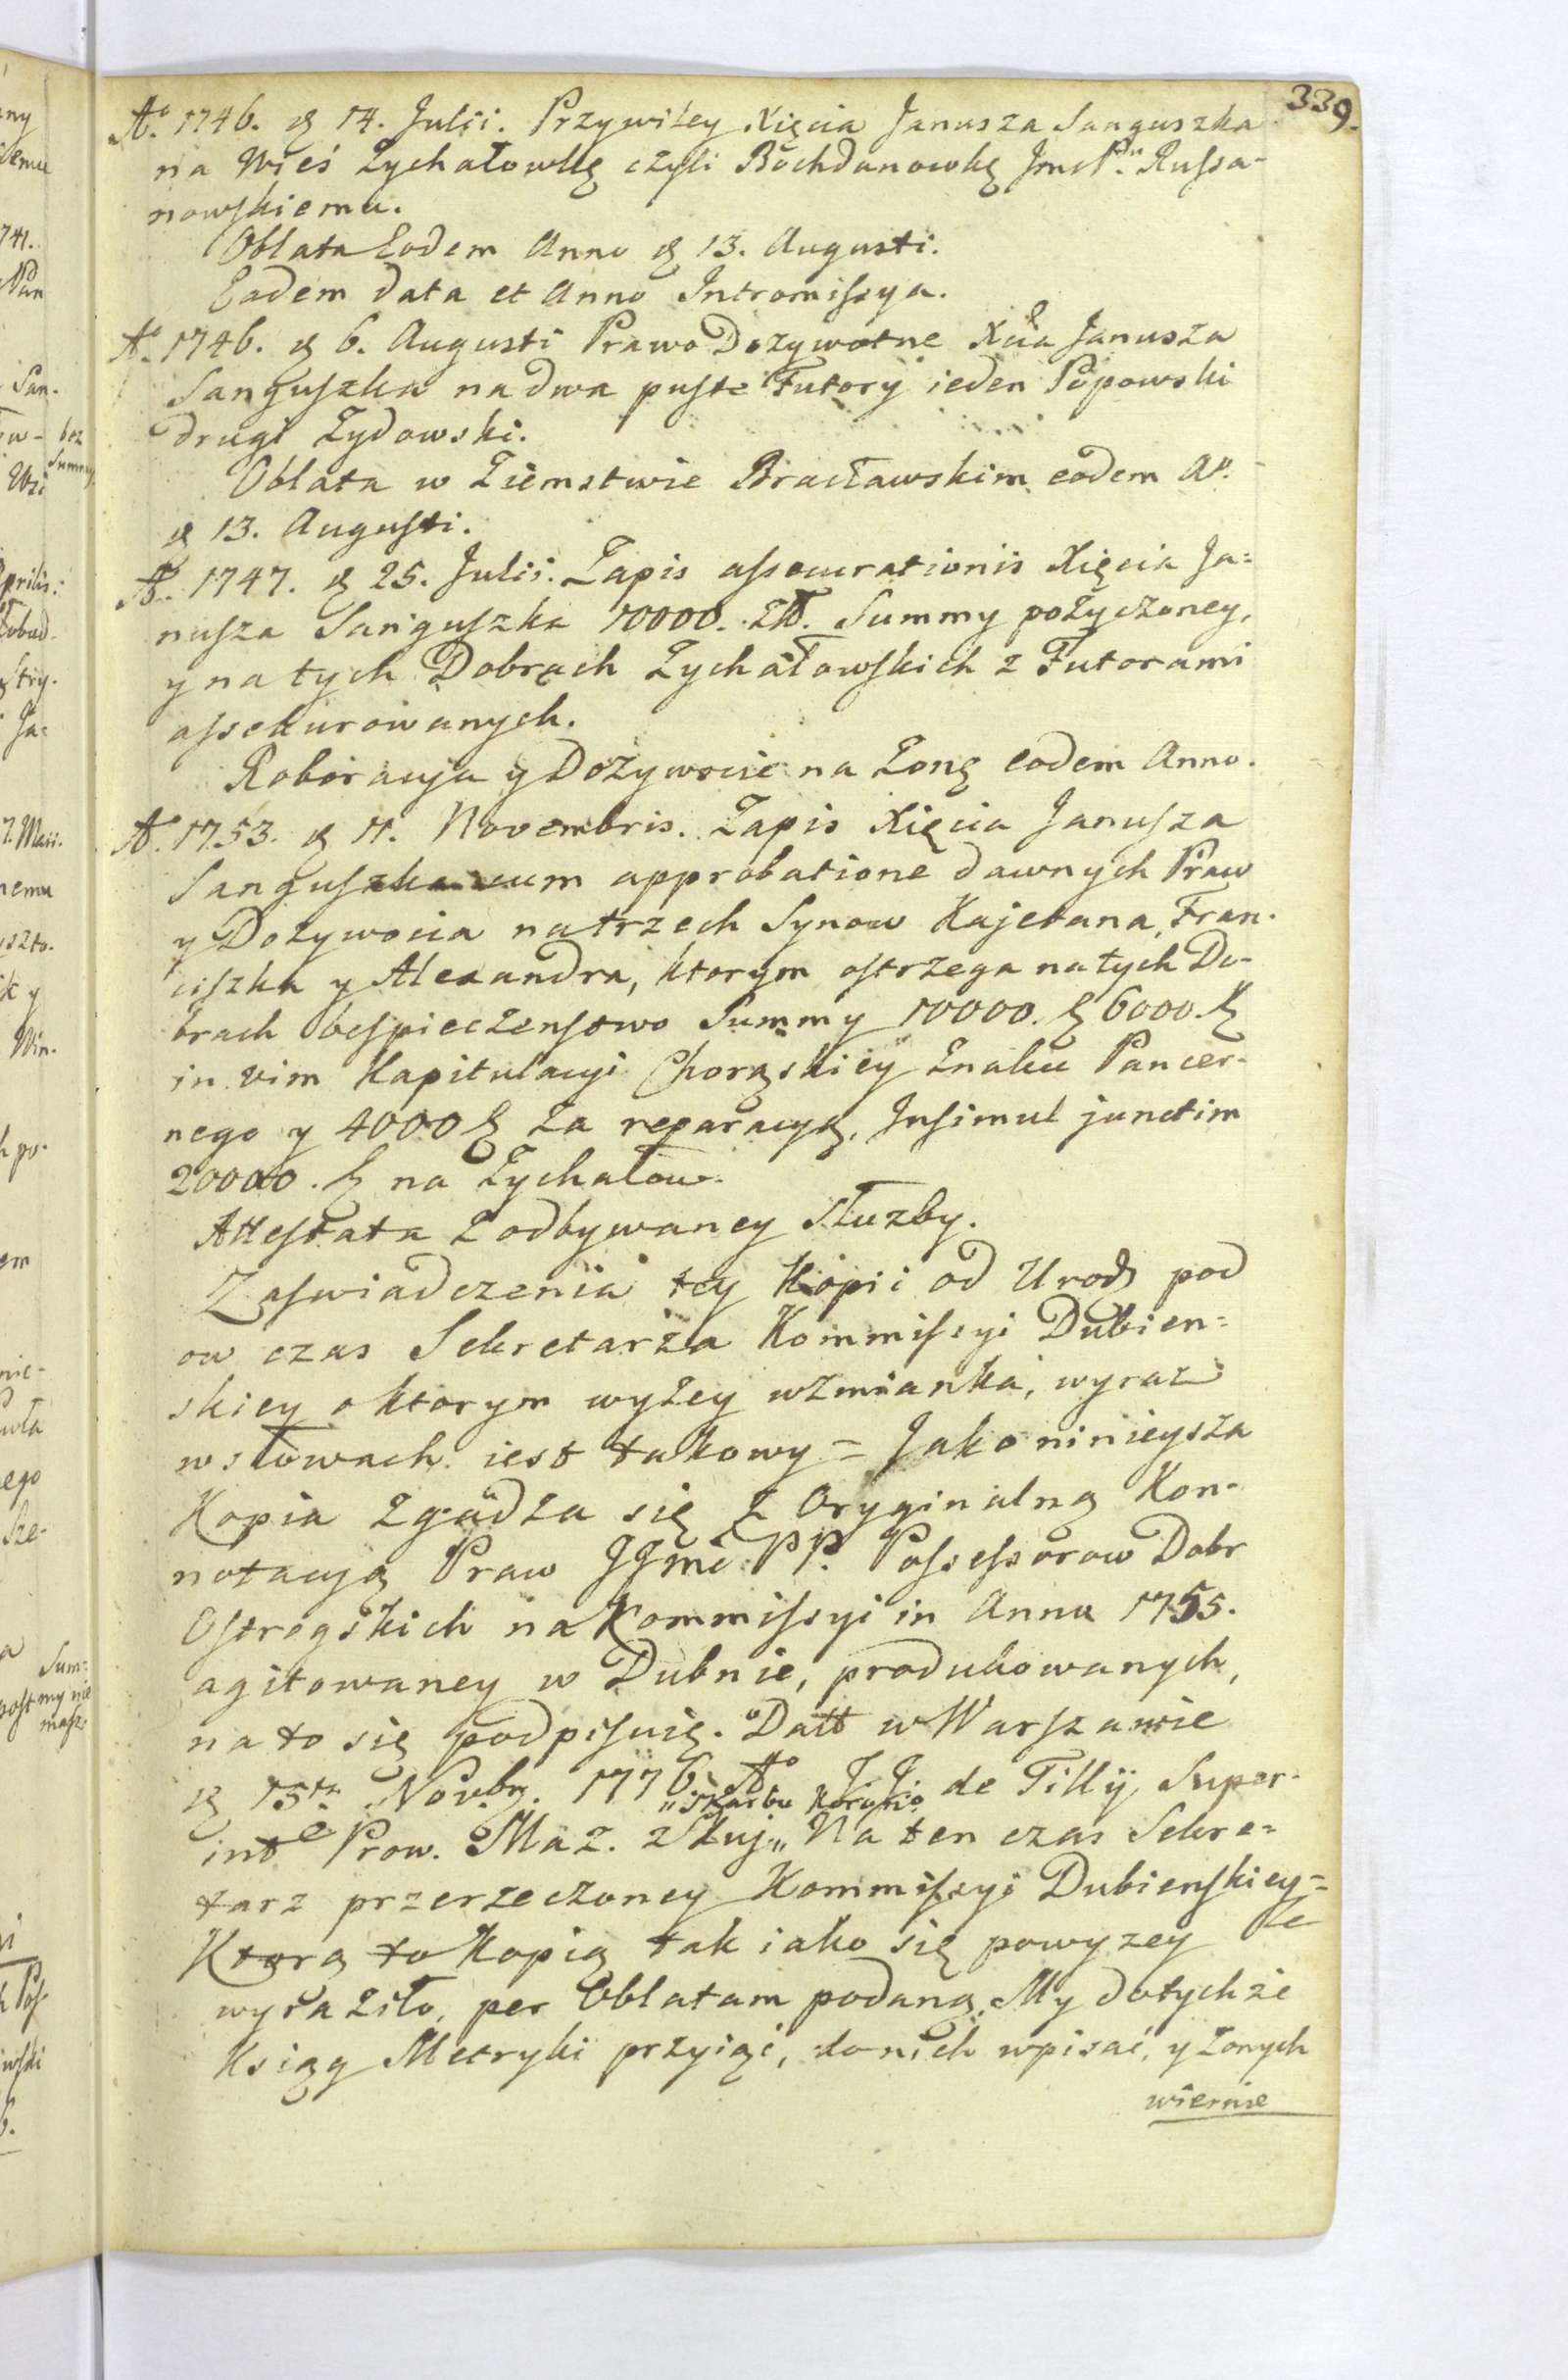 339.
Aº. 1746. d 14. Julii. Przywiley Xięcia Janusza Sanguszka
na Wieś Zychałowkę czyli Bochdanowkę Jmć Pdu. Russa-
nowskiemu.
Oblata Eodem Anno d 13. Augusti.
Eadem data et Anno Intromissya.
Aº. 1746. d 6. Augusti Prawo Dozywotne Xcia Janusza
Sanguszka na dwa puste Futory ieden Popowski
drugi Zydowski.
Oblata w Ziemstwie Bracławskim eodem Aº.
d 13. Augusti.
Aº. 1747. d 25. Julii. Zapis assecurationis Xięcia Ja=
nusza Sanguszka 10000. Zł. Summy pożyczoney,
y na tych Dobrach Zychałowskich z Futorami
assekurowanych.
Roboracya y Dożywocie na Zonę eodem Anno.
Aº. 1753. d 11. Novembris. Zapis Xięcia Janusza
Sanguszka cum approbatione dawnych Praw
y Dożywocia na trzech Synow Kajetana, Fran-
ciszka y Alexandra, ktorym ostrzega na tych Do-
brach bespieczenstwo Summy 10000. zł 6000. zł
in vim Kapitulacyi Chorąskiey Znaku Pancer-
nego y 4000 zł za reparacyą, Insimul junctim
20000. zł na Zychałow.
Attestata z odbywaney służby.
Zaswiadczenia tey Kopii od Urodz pod
ow czas Sekretarza Kommissyi Dubien=
skiey o ktorym wyżey wzmianka, wyraz
w słowach iest takowy = Jako ninieysza
Kopia zgadza się z Oryginalną Kon-
notacyą Praw JJmć PP. Possessorow Dobr
Ostrogskich na Kommissyi in Anno 1755.
agitowaney w Dubnie, produkowanych,
na to się podpisuię. Datt w Warszawie
d 15ta Novbr. 1776 Aº J J de Tillÿ Super-
"Skarbu Koron:
int e Prow. Maz. z Kuj" Na ten czas Sekre=
tarz przerzeczoney Kommissyi Dubienskiey =
Ktorą to Kopią tak iako się powyzey
wyraziło, per Oblatam podaną, My do tychże
Ksiąg Metryki przyiąć, do nich wpisać, y z onych
wiernie
bez
Summy
Sum=
my nie
masz.